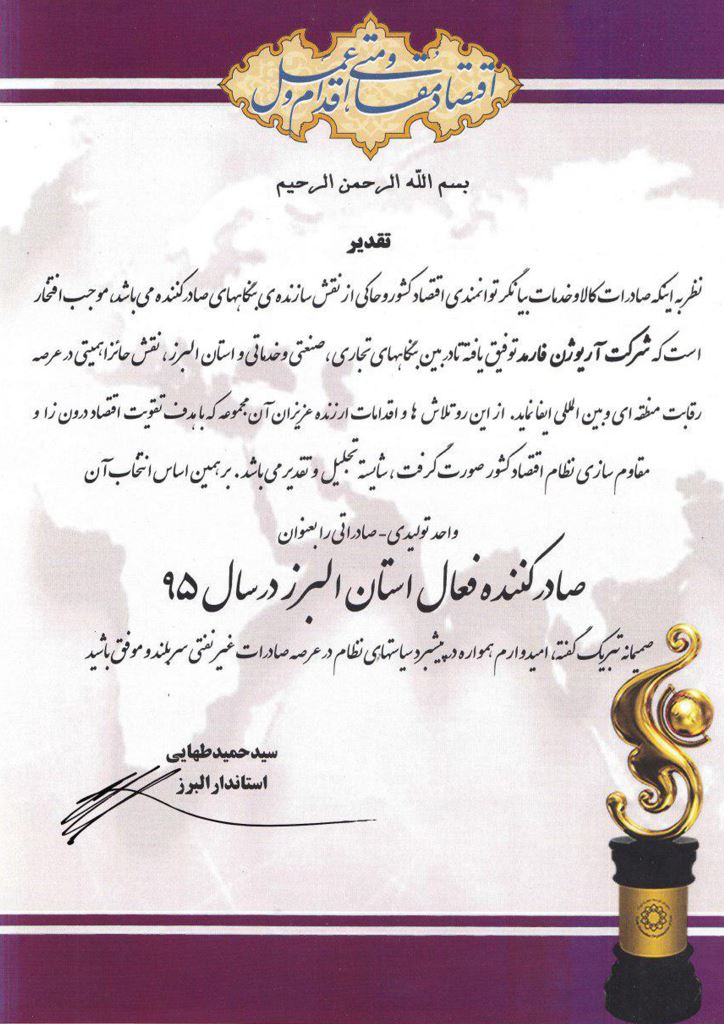 اقتصاد مقاومتی اقدام و عمل
بسم الله الرحمن الرحیم
تقدیر
نظر به اینکه صادرات کالا و خدمات بیانگر توانمندی اقتصاد کشور و حاکی از نقش سازنده ی بنگاههای صادرکننده می باشد، موجب افتخار
است که شرکت آریوژن فارمد توفیق یافته تا در بین بنگاههای تجاری، صنعتی و خدماتی و استان البرز، نقش حائز اهمیتی در عرصه
رقابت منطقه ای و بین المللی ایفا نماید. از این رو تلاش ها و اقدامات ارزنده عزیزان آن مجموعه که با هدف تقویت اقتصاد درون زا و
مقاوم سازی نظام اقتصاد کشور صورت گرفت، شایسته تجلیل و تقدیر می باشد. بر همین اساس انتخاب آن
واحد تولیدی-صادراتی را بعنوان
صادرکننده فعال استان البرز در سال ۹۵
صمیمانه تبریک گفته، امیدوارم همواره در پیشبرد سیاستهای نظام در عرصه صادرات غیرنفتی سربلند و موفق باشید
سید حمید طهایی
استاندار البرز